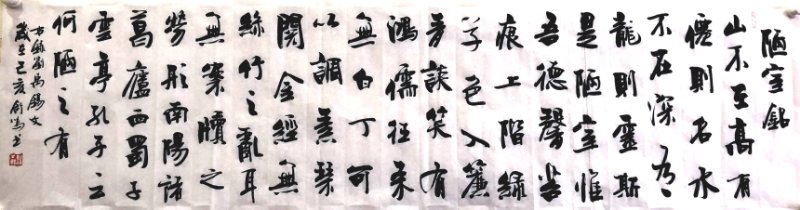 陋室銘
山不在高有
僊則名水
不在深有
龍則靈斯
是陋室惟
吾德馨苔
痕上階緑
草色入簾
青談笑有
鴻儒往来
無白丁可
以調素琴
閱金經無
絲竹之亂耳
無案牘之
勞形南陽諸
葛廬西蜀子
雲亭孔子云
何陋之有
右錄劉禹錫文
歲在己亥